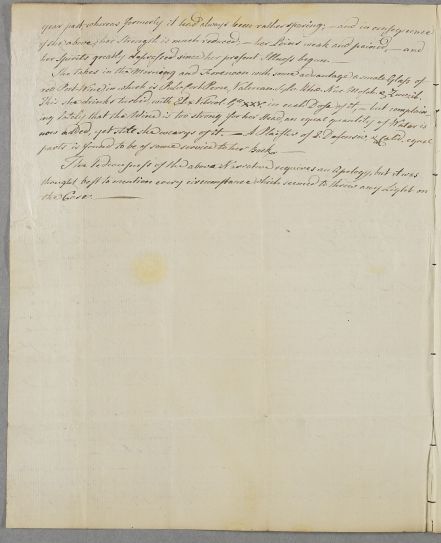 year past, whereas formerly it had always been rather sparing; — and in consequence
of the above, her Strength is much reduced; — her Loins weak and pained, — and
her Spirits greatly depressed since her present Illness began. —
She takes in the Morning and Forenoon with some advantage a small Glass of
red Port Wine in which is Valerian, Nux Mosch. & Zinzib.
This she drinks with Gtt. XXX. in each Dose of it, — but complain-
ing lately that the Wine is too strong for her Head an equal quantity of Water is
now added, yet still she wearys of it. — A Plaister of equal
parts is found to be of some service to her Back. —
The tediousness of the above Narrative requires an Apology, but it was
thought best to mention every circumstance which seemed to throw any Light on
the Case. —